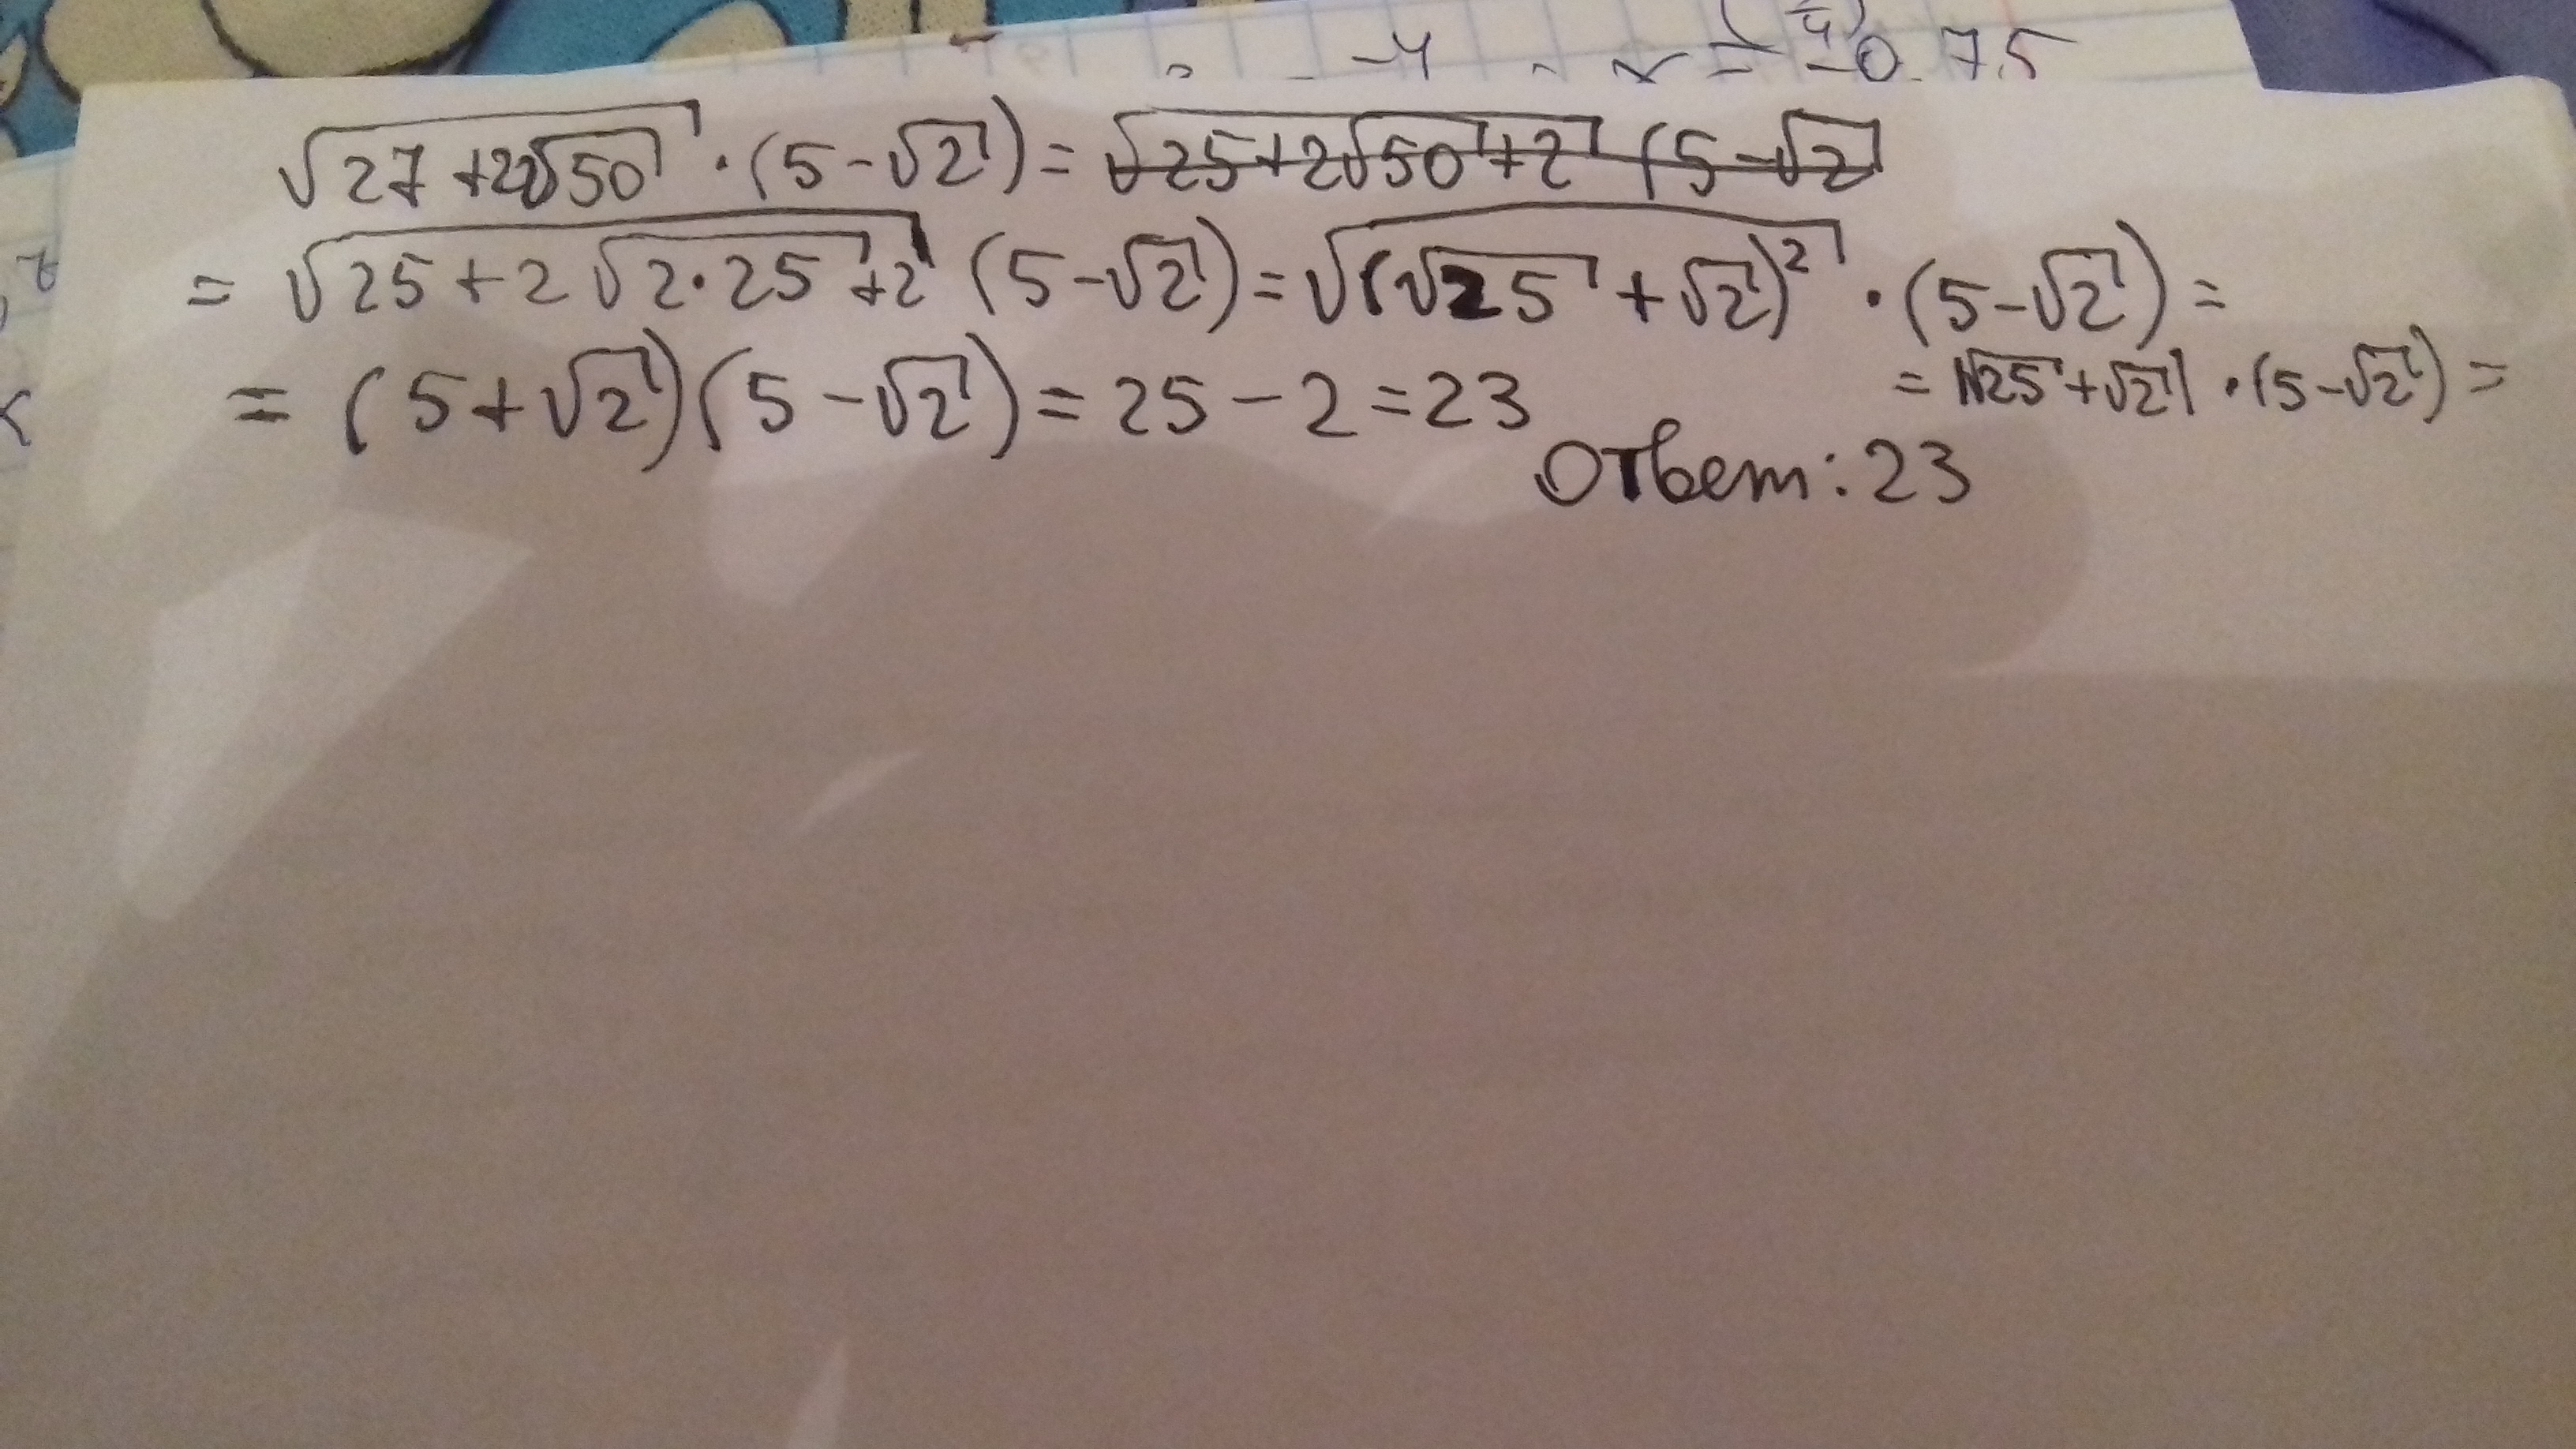 -4 x = -0.75
√(27+2√50) · (5-√2) = √(25+2√50+2) (5-√2
= √(25+2√(2·25)+2) (5-√2) = √((√25+√2)²) · (5-√2) =
= |√25+√2| · (5-√2) =
= (5+√2)(5-√2) = 25-2 = 23
Ответ: 23